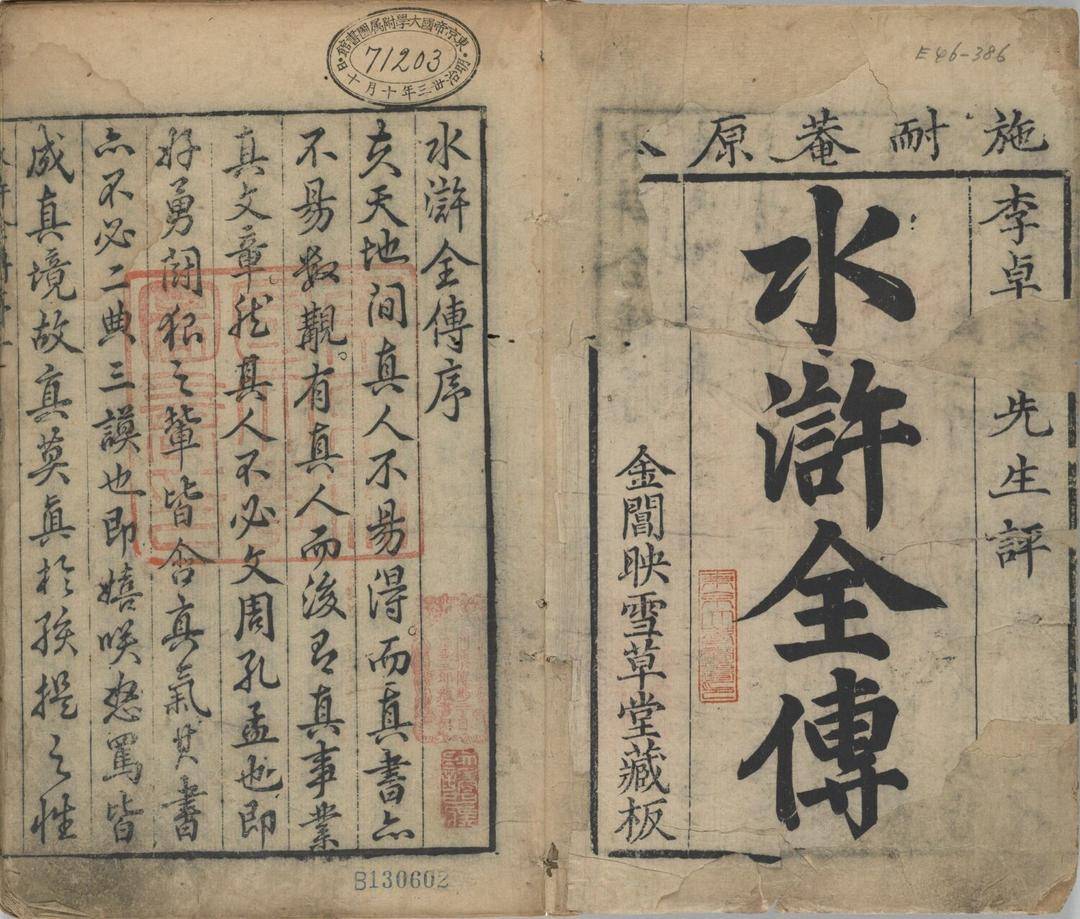 E46-386
施耐菴原
李卓
先生評
水滸全傳
金閶映雪草堂藏板
東京帝國大學附屬圖書館
71203
明治卅三年十月十日
水滸全傳序
夫天地間真人不易得。而真書亦
不易数覯。有真人而後有真事業
真文章。然其人不必文周孔孟也即
好勇鬪狠之輩皆含真氣其書
亦不必二典三謨也即嬉咲怒罵皆
成真境故真莫真於孩提之性
B130602